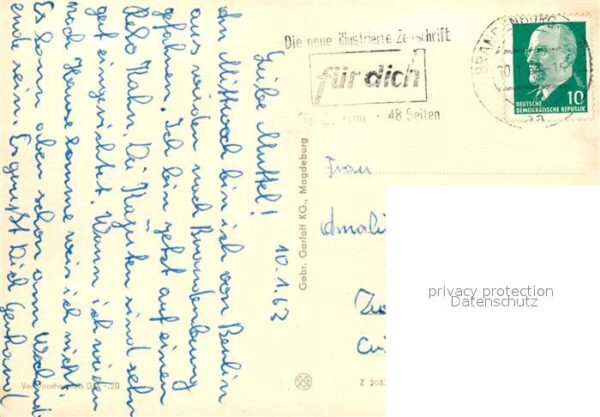 10.1.63
Liebe Muttel!
Am Mittwoch bin ich von Berlin
aus wieder nach Brandenburg
gefah. Ich bin jetzt auf einen
Reko Kahn. Die Kajüten sind sehr
gut eingerichtet. Wann ich wieder
nach Hause komme weis ich nicht.
Es kann aber schon am Wochend
ende sein. Es grüßt Dich Gerhard
Die neue illustrierte Zeitschrift
für dich
48 Seiten
BRANDENBURG
DEUTSCHE
DEMOKRATISCHE REPUBLIK
10
Frau
Amali
Gebr. Garloff KG., Magdeburg
privacy protection
Datenschutz
Z 208